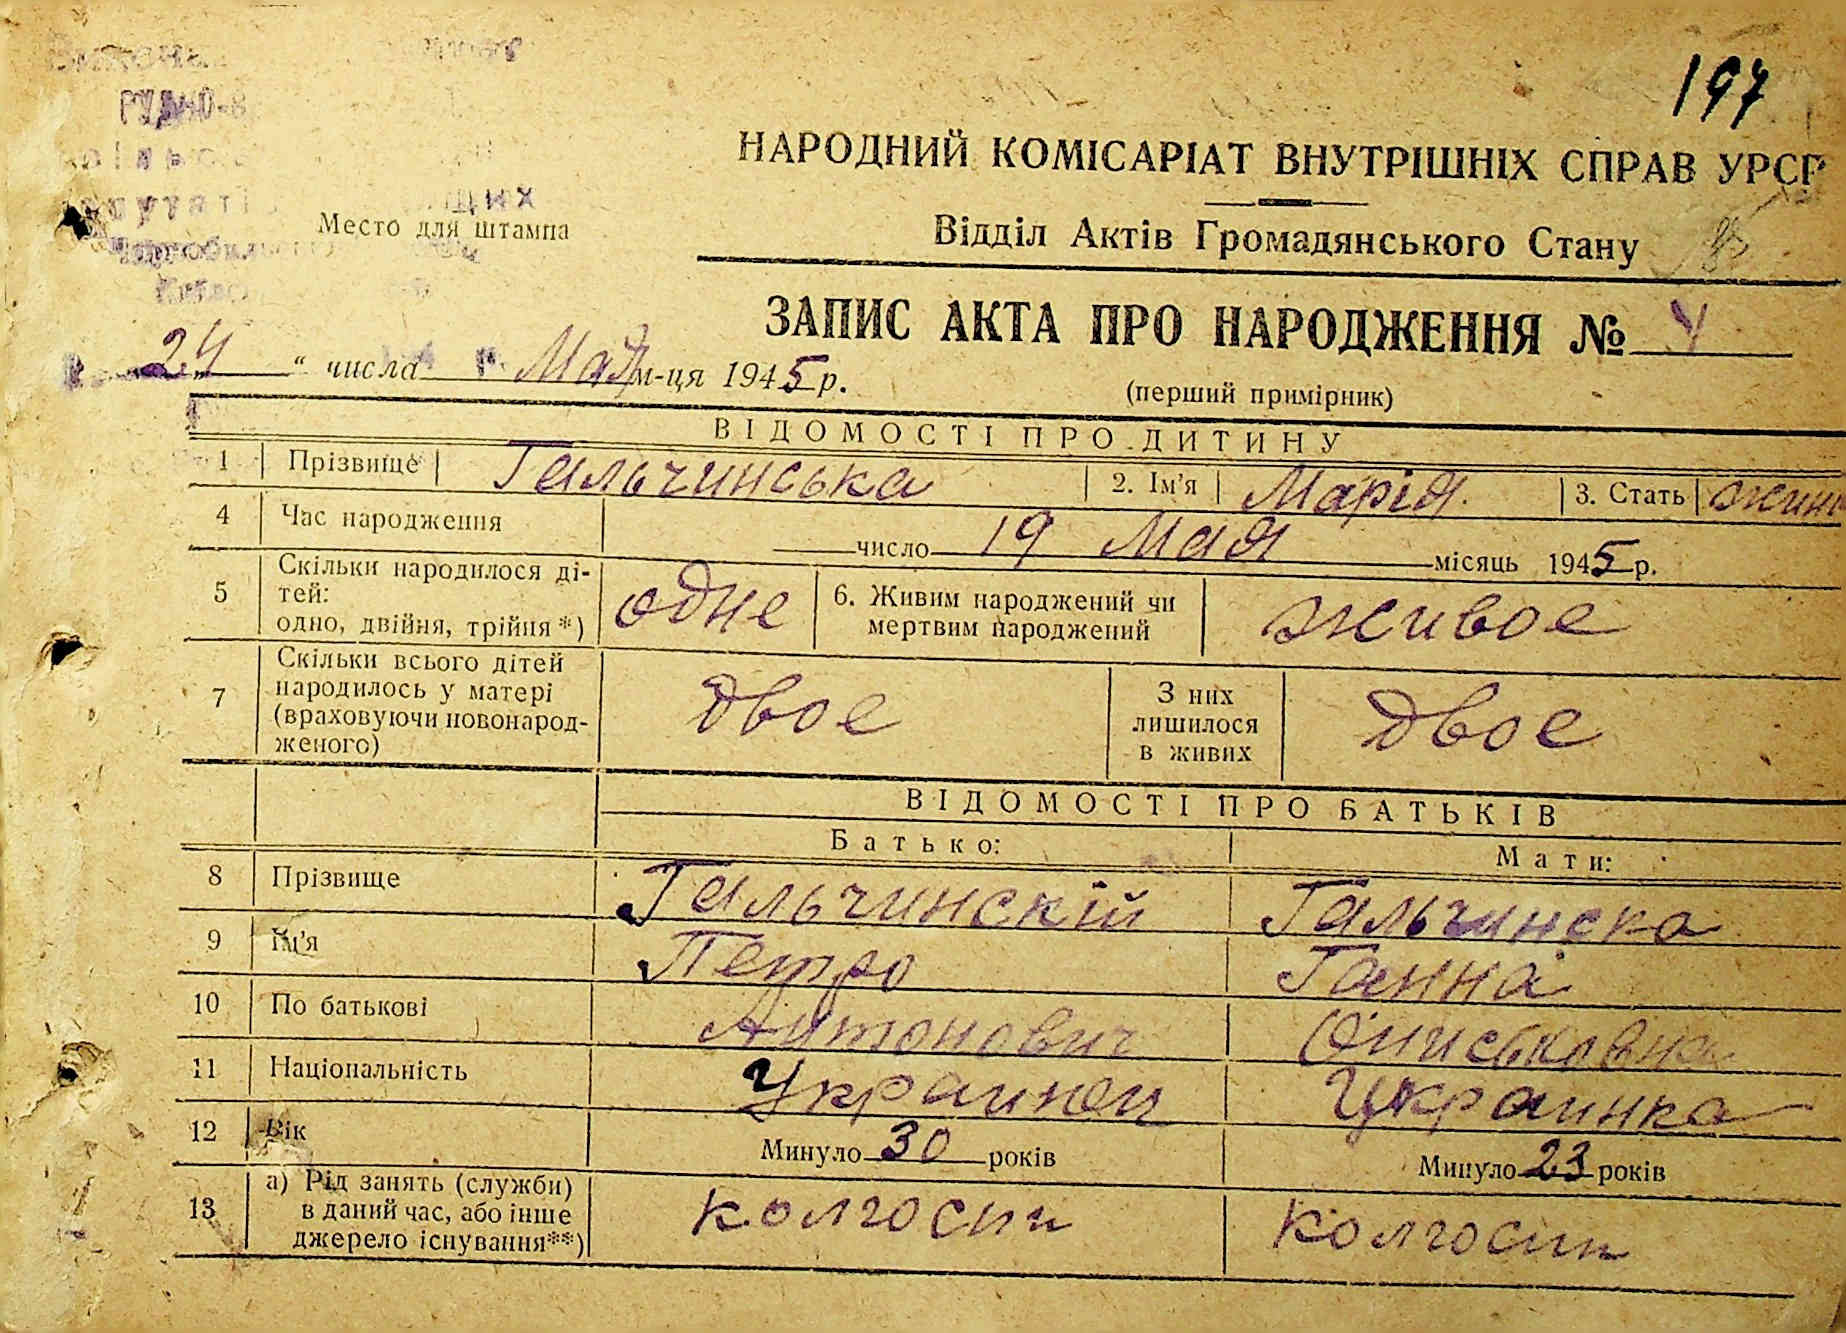 197
НАРОДНИЙ КОМІСАРІАТ ВНУТРІШНІХ СПРАВ УРСР
Место для штампа
Відділ Актів Громадянського Стану
ЗАПИС АКТА ПРО НАРОДЖЕННЯ № 4
24 “ числа Мая м-ця 1945 р.
(перший примірник)
ВІДОМОСТІ ПРО ДИТИНУ
1 Прізвище Гальчинська 2. Ім'я Марія 3. Стать
4 Час народження число 19 Мая місяць 1945 р.
5 Скільки народилося ді-
тей:
одно, двійня, трійня *) одне 6. Живим народжений чи
мертвим народжений живое
7 Скільки всього дітей
народилось у матері
(враховуючи новонарод-
женого) двое З них
лишилося
в живих двое
ВІДОМОСТІ ПРО БАТЬКІВ
Батько: Мати:
8 Прізвище Гальчинскій Гальчинска
9 Ім'я Петро Ганна
10 По батькові Антонович
11 Національність Украинец Украинка
12 Вік Минуло 30 років Минуло 23 років
13 а) Рід занять (служби)
в даний час, або інше
джерело існування**) колгосп колгосп